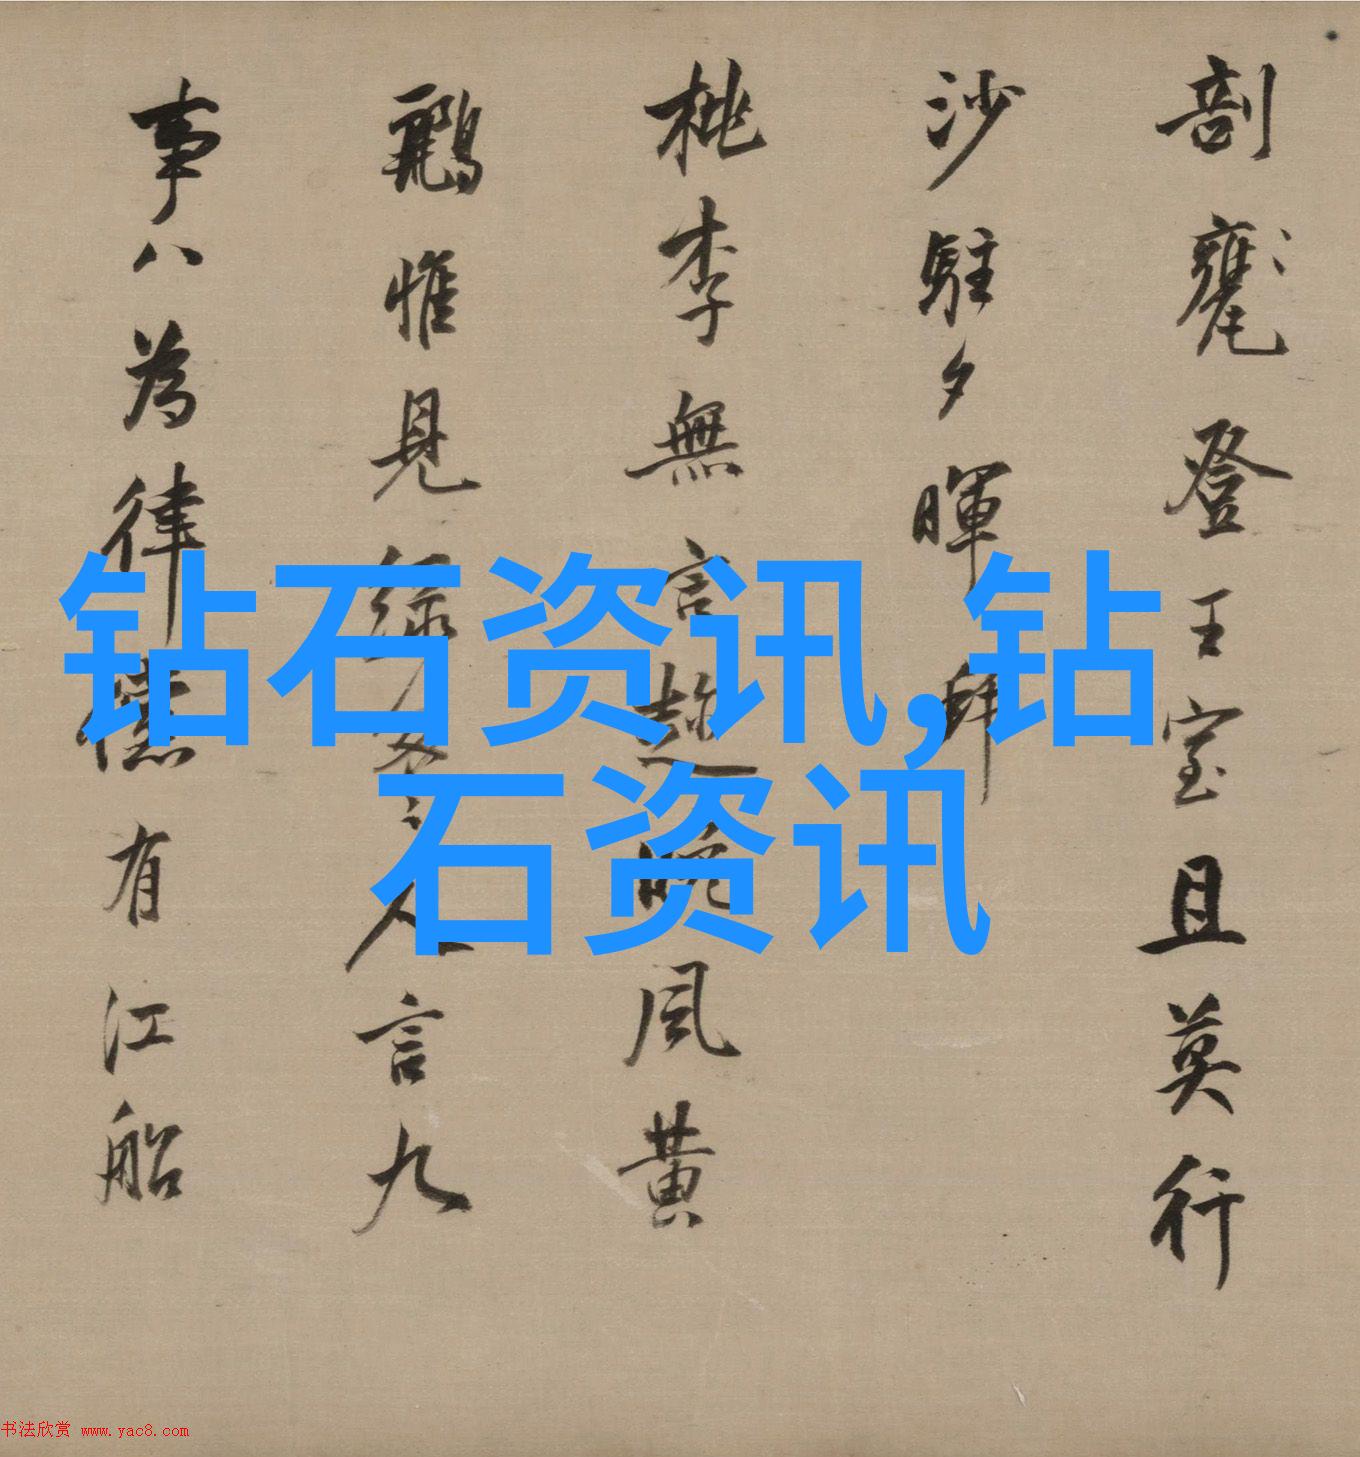 剖甕登王室且莫行
沙駐夕暉
桃李無言趂晚風黃
鸝惟見綠
言九
事八為律
有江船
钻石资讯,钻
石资讯
书法欣赏 www.yac8.com